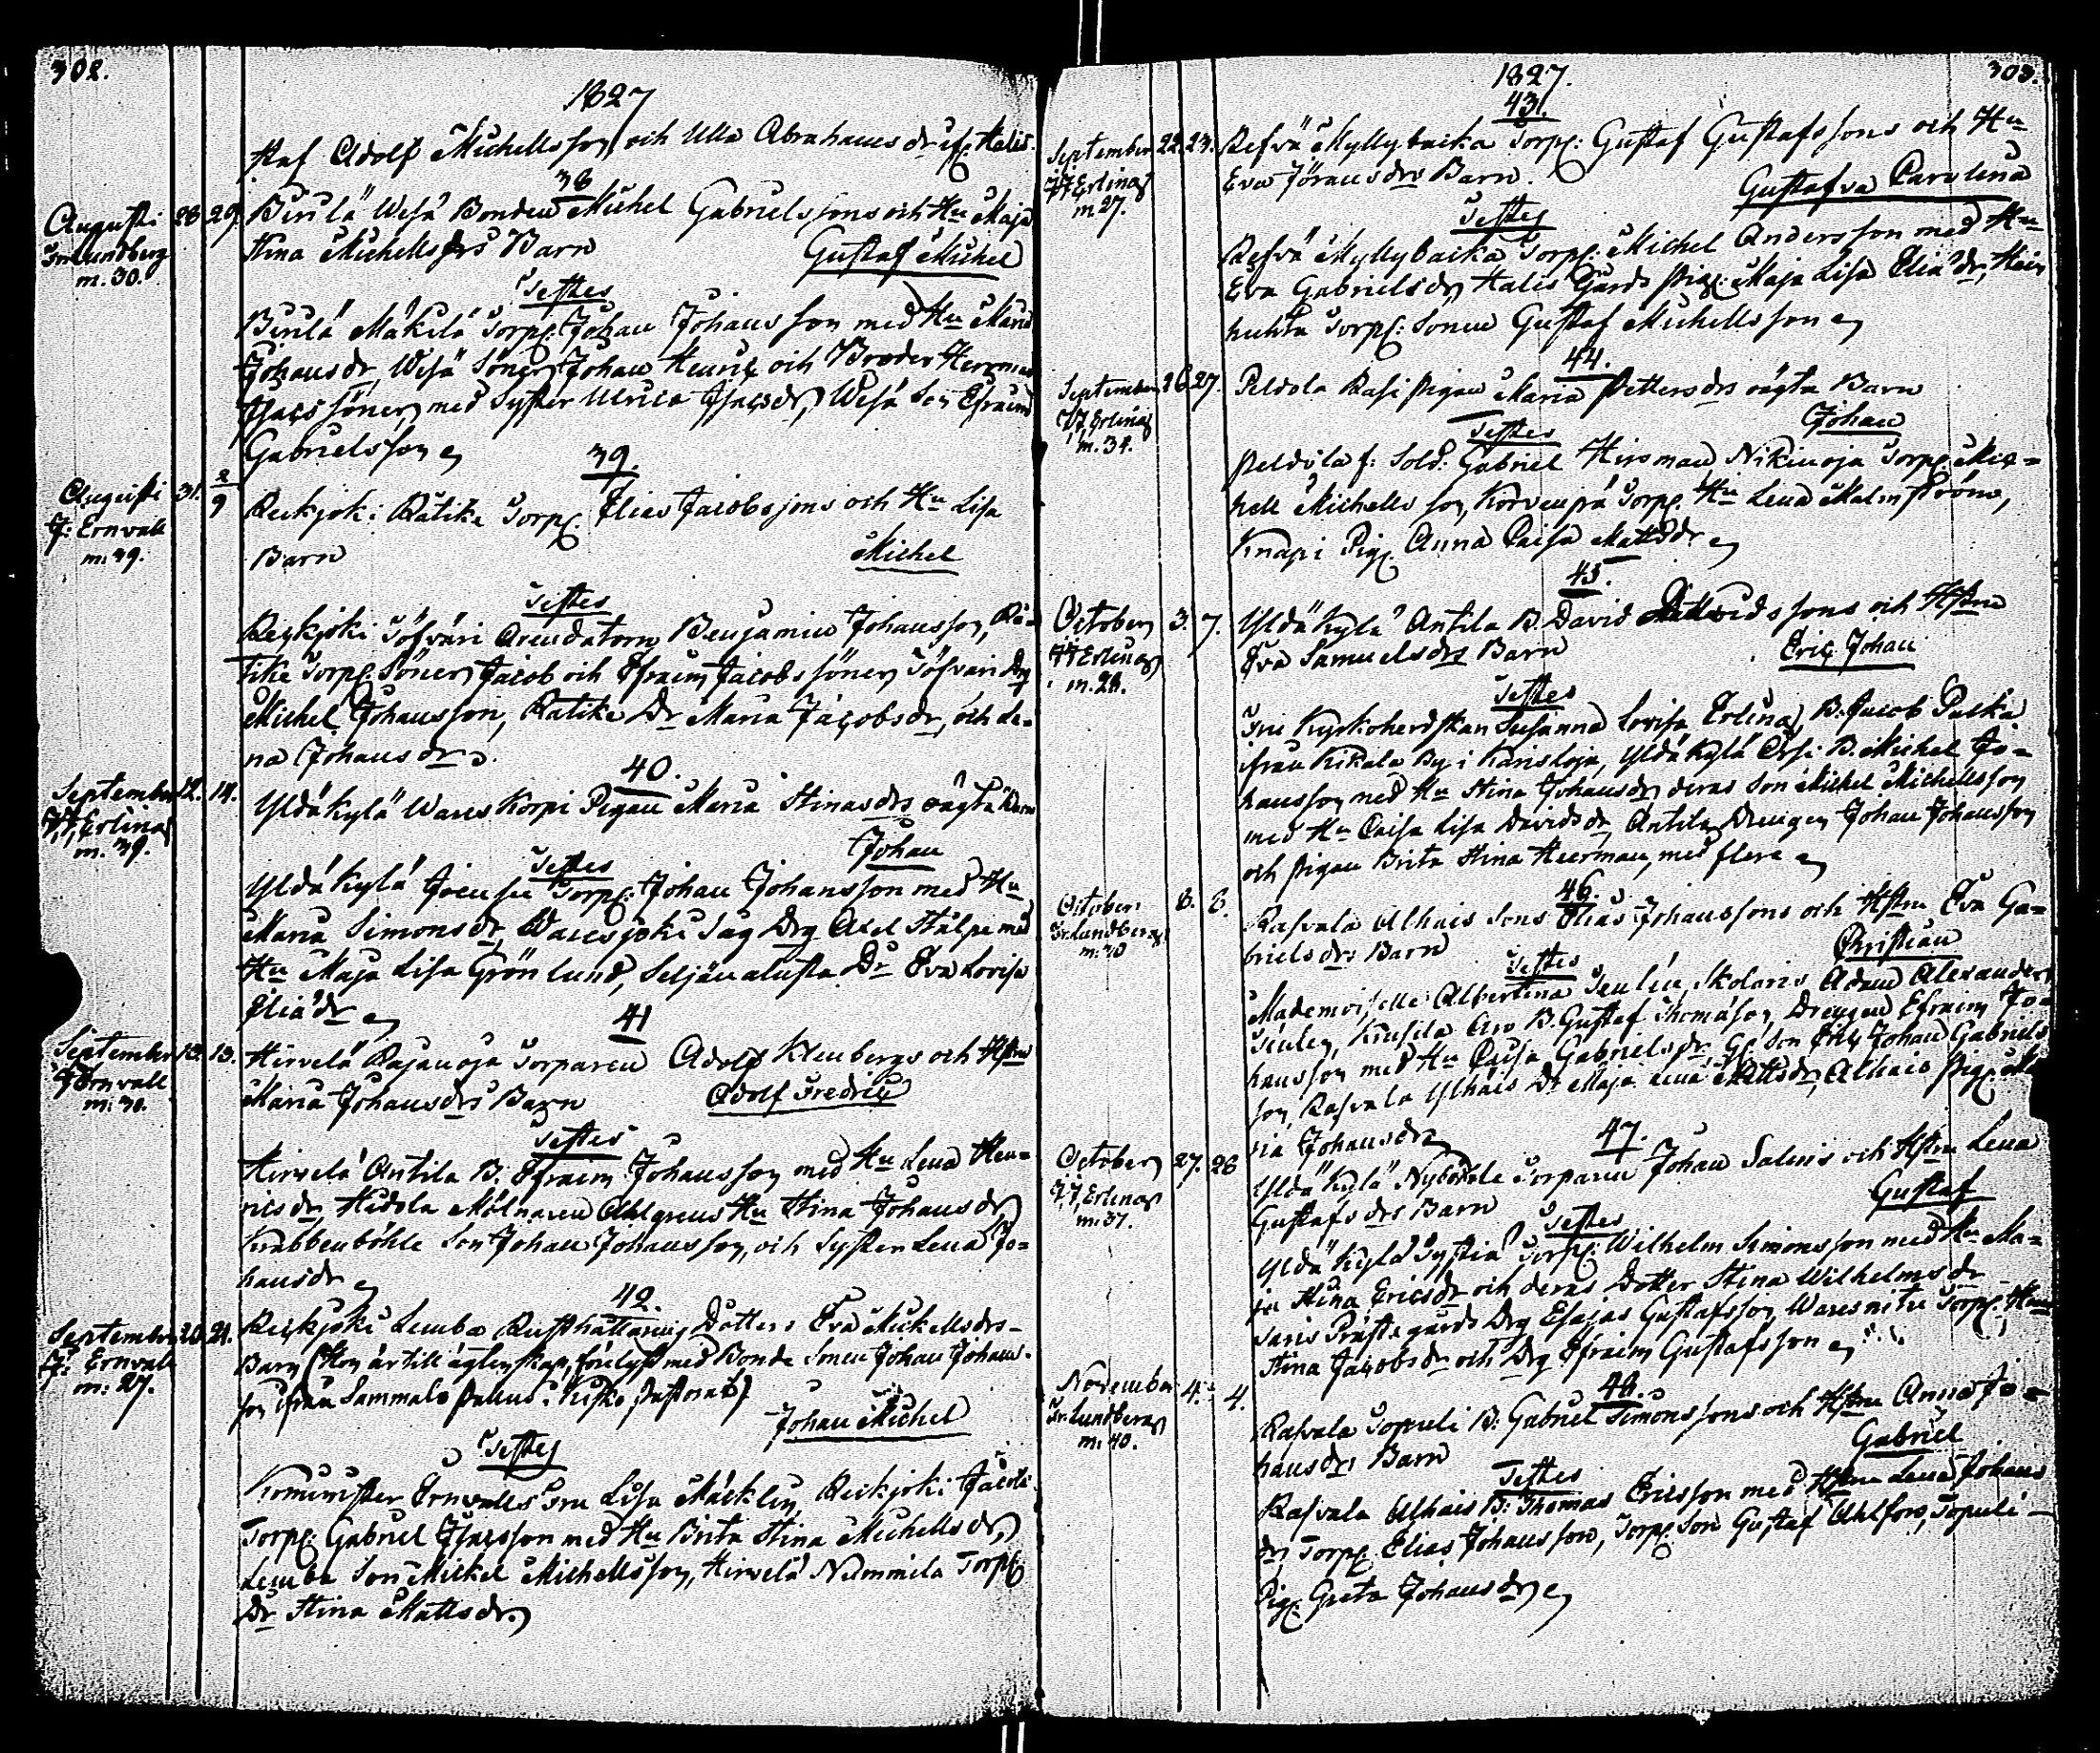 302.
1827
staf Adolf Michellsson och Ulla Abrahamsdr
38
Augusti 28. 29. Pirilä Wesä Bonden Michel Gabrielssons och Hu Maja
Fr. Lundberg
m. 30.
Stina Michellsdrs Barn
Gustaf Michel
Testes
Pirilä Mäkilä Torp: Johan Johansson med Hu Maria
Johansdr, Wesä Söner Johan Henric och Broder Herrman
Isacs söner, med Syster Ulrica Isacsdr, Wesä Son Efraim
Gabrielsson
39.
Augusti 31. 2/9 Reikjoki Rätike Torp. Elias Jacobssons och Hu Lisa
J: Ernvall
m: 39.
Barn
Michel
Testes
Reikjoki Töfväri Arendatorn Benjamin Johansson, Rä-
tike Torp. Söner Jacob och Efraim Jacobssöner, Töfväri Drg
Michel Johansson, Rätike Dr Maria Jacobsdr, och Le-
na Johansdr
40.
September 12. 14. Yldäkylä Wares Korpi Pigan Maria Stinasdrs oägta Barn
J.J. Erlinas
m. 39.
Johan
Testes
Yldäkylä Torp: Johan Johansson med Hu
Maria Simonsdr, Waresjoki Sag Drg Axel Stålpe med
Hu Maja Lisa Grönlund, Seljänalusta Dr Eva Lovisa
Eliædr
41
September 13. 13. Hirvelä Rajanoja Torparen Adolf Klenbergs och Hstru
J Ernvall
m: 30.
Maria Johansdrs Barn
Adolf Fredric
Testes
Hirvelä Antila B. Efraim Johansson med Hu Lena Hen-
ricsdr, Hidola Mölnaren Ahlgrens Hu Stina Johansdr,
Krabbenböhle Son Johan Johansson, och Syster Lena Jo-
hansdr
42.
September 20. 21. Reikjoki Lemba Rusthållaring Dotters Eva Mickellsdrs
J: Ernvall
m: 27.
Barn (Hon är till ägtenskap förelyst med Bonde Sonen Johan Johans-
son ifrån Sammalo Kisko Pastorat)
Johan Michel
Testes
Komminister Ernvalls Fru Lisa Mäcklin, Reikjoki Jacola
Torp: Gabriel Isacsson med Hu Brita Stina Michellsdr,
Lemba Son Mickel Michellsson, Hirvelä Nummila Torp.
Dr Stina Mattsdr.
303.
1827.
43.
September 22. 23. Refvä Myllybacka Torp: Gustaf Gustafssons och Hu
J.J. Erlinas
m 27.
Eva Jöransdrs Barn.
Gustafva Carolina
Testes
Refvä Myllybacka Torp: Michel Andersson med Hu
Eva Gabrielsdr, Halis Gårds Pig: Maja Lisa Eliædr, Hein
huhta Torp: Sonen Gustaf Michellsson
44.
September 26. 27. Peldola Rasi Pigan Maria Pettersdrs oägta Barn
J.J. Erlinas
m. 34.
Johan
Testes
Peldola f: Sold: Gabriel Hirsman, Nikinoja Torp. Mic-
hell Michellsson, Korvenpä Torp. Hu Lena Malmström,
Knapi Pig. Anna Caisa Mattsdr
45.
October 3. 7. Yldäkylä Antila B. David Davidssons och Hstru
J.J Erlinas
m. 28.
Eva Samuelsdrs Barn
Eric Johan
Testes
Fru Kyrkoherdskan Susanna Lovisa Erlina, B. Jacob Paska
ifrån Kikala By i Karisloja, Yldäkylä Erfi B. Michel Jo-
hansson med Hu Stina Johansdr, deras Son Michel Michellsson
med Hu Caisa Lisa Davidsdr, Antila Drengen Johan Johansson
och Pigan Brita Stina Heerman, med flere
46.
October 8. 8. Rasvala Alhais Sons Elias Johanssons och Hstru Eva Ga-
Fr. Lundberg
m. 40
brielsdrs Barn
Christian
Testes
Mademoiselle Albertina Tenlén, Skolaris Adam Alexander
Tenlen, Krusila Aro B. Gustaf Thomasson, Drengen Efraim Jo-
hansson med Hu Caisa Gabrielsdr, Son Johan Gabriels
son, Rasvala Ylhäis Dr Maja Lena Mattsdr, Alhais Pig: Ma
ria Johansdr
47.
October 27. 28 Yldäkylä Nyböhle Torparen Johan Salins och Hstru Lena
J.J. Erlinas
m: 37.
Gustafsdrs Barn
Gustaf
Testes
Yldäkylä Torp: Wilhelm Simonsson med Hu Ma-
ja Stina Ericsdr och deras Dotter Stina Wilhelmsdr
Präste gårds Drg Esajas Gustafsson, Waresniitu Torp.
Stina Jacobsdr och Drg Efraim Gustafsson
48.
November 4. 4. Rasvala Topuli B. Gabriel Simonssons och Hstru Anna Jo-
Fr. Lundberg
m: 40.
hansdrs Barn
Gabriel
Testes
Rasvala Alhais B: Thomas Ericsson med Hstru Lena Johans
dr, Torp. Elias Johansson, Torp. Son Gustaf Ahlfors, Topuli
Pig: Greta Johansdr